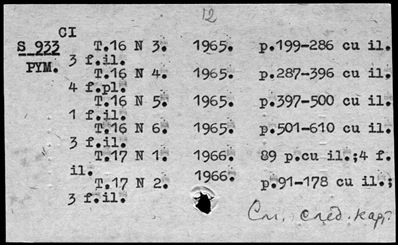 12
CI
S 933 T.16 N 3. 1965. p.199-286 cu il.
РУМ. 3 f.il.
T.16 N 4. 1965. p.287-396 cu il.
4 f.pl.
T.16 N 5. 1965. p.397-500 cu il.
1 f.il.
T.16 N 6. 1965. p.501-610 cu il.
3 f.il.
T.17 N 1. 1966. 89 p.cu il.;4 f.
il.
T.17 N 2. 1966. p.91-178 cu il.;
3 f.il.
См. след. кар.